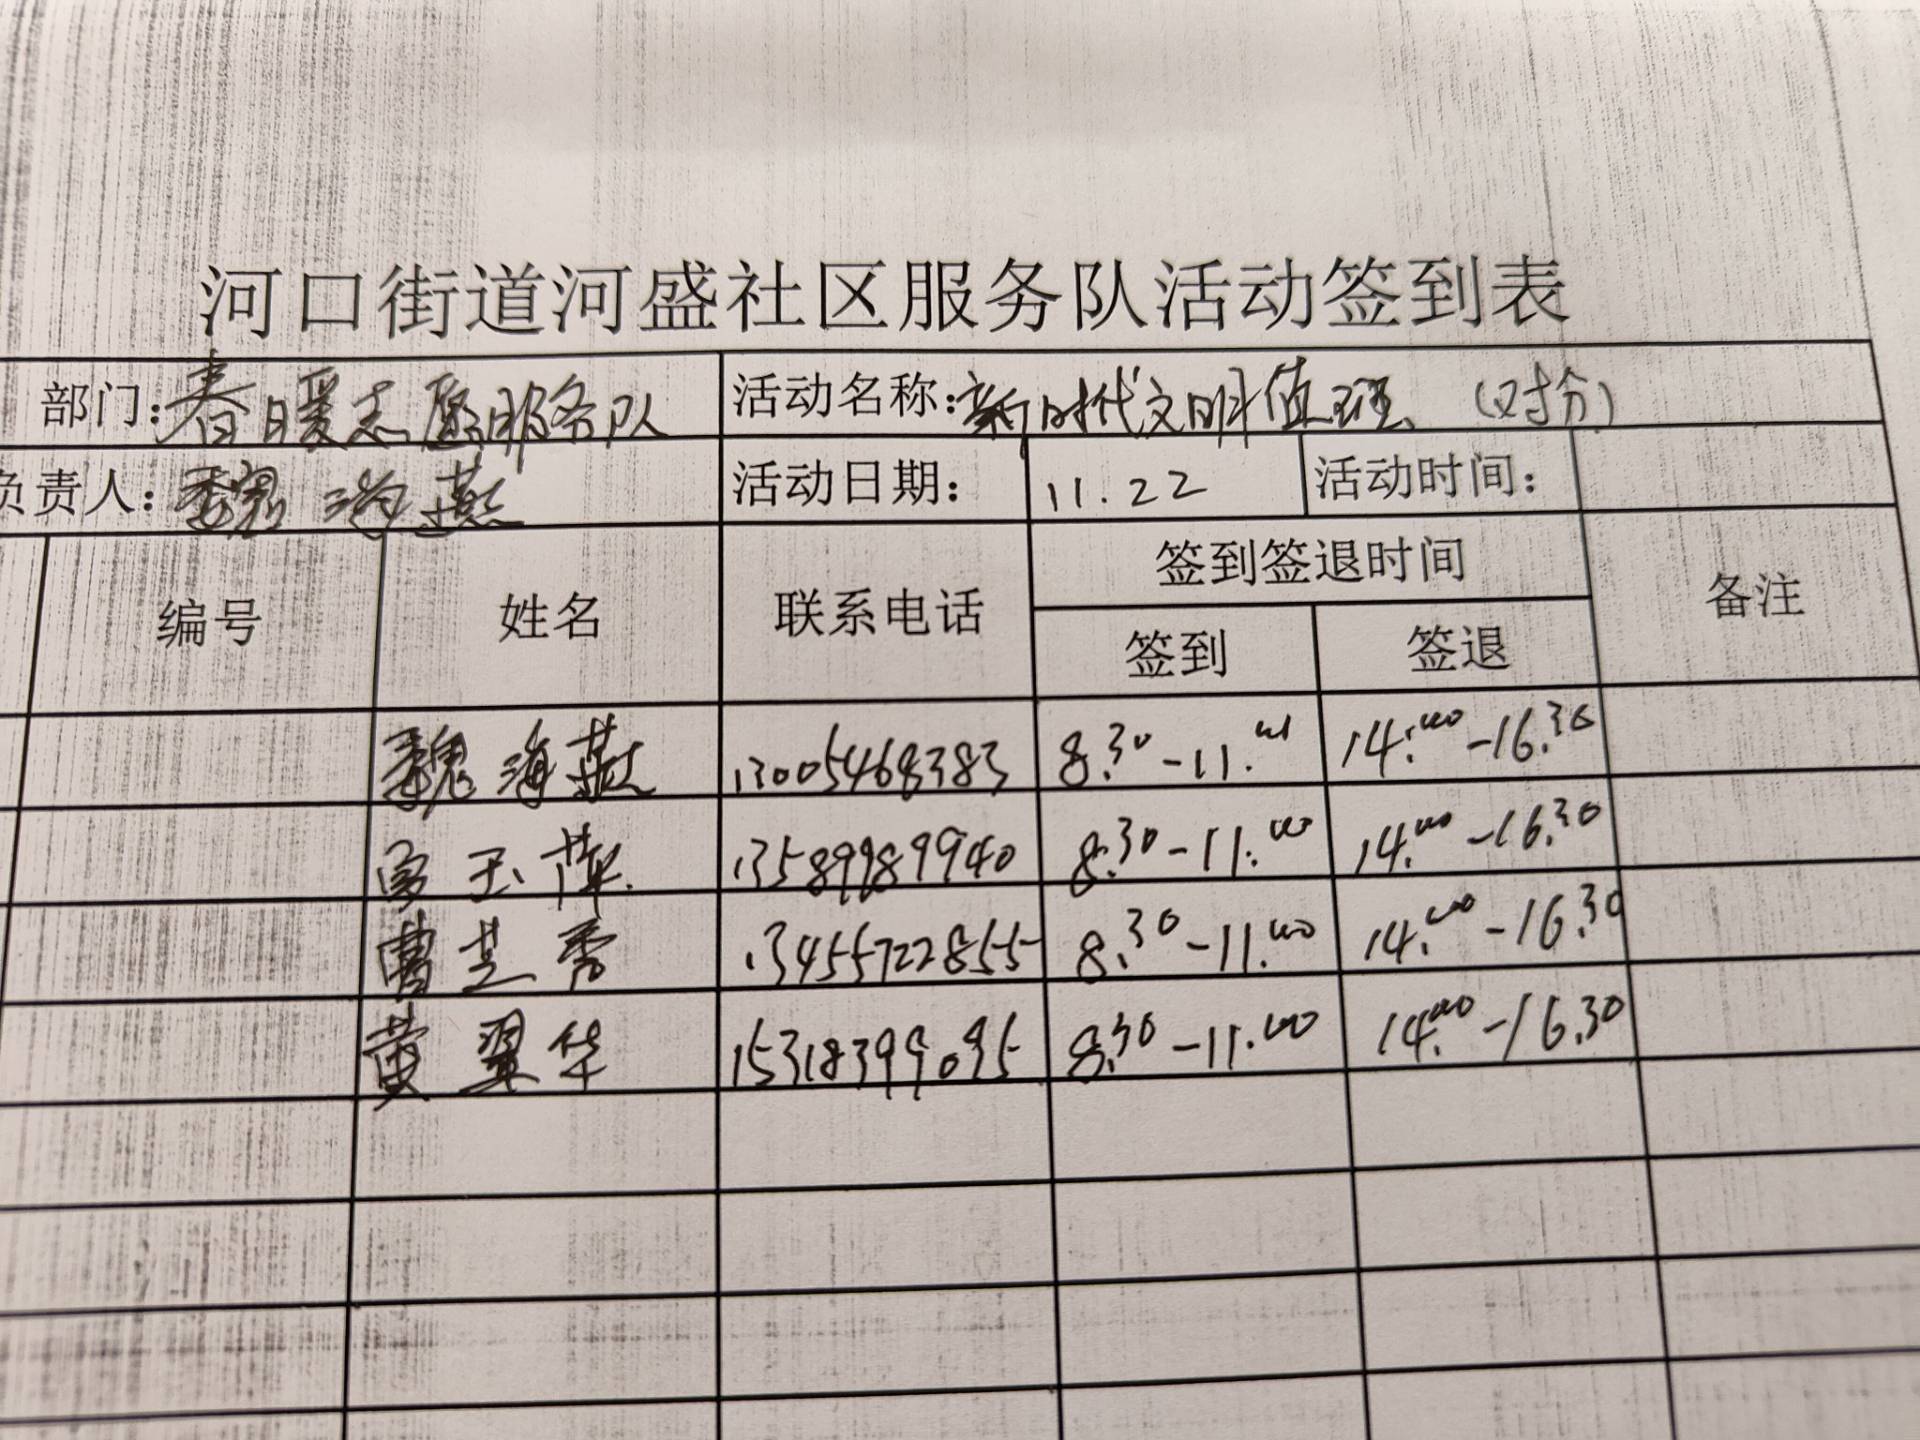 河口街道河盛社区服务队活动签到表
部门：春暖志愿服务队 活动名称：新时代文明值班（对分）
负责人：魏海燕 活动日期： 11.22 活动时间：
编号 姓名 联系电话 签到签退时间 备注
签到 签退
魏海燕 13005468383 8.30-11. 14.00-16.30
玉萍 13589989940 8.30-11.00 14.00-16.30
曹芝秀 13455722855 8.30-11.00 14.00-16.30
黄翠华 15318399095 8.30-11.00 14.00-16.30